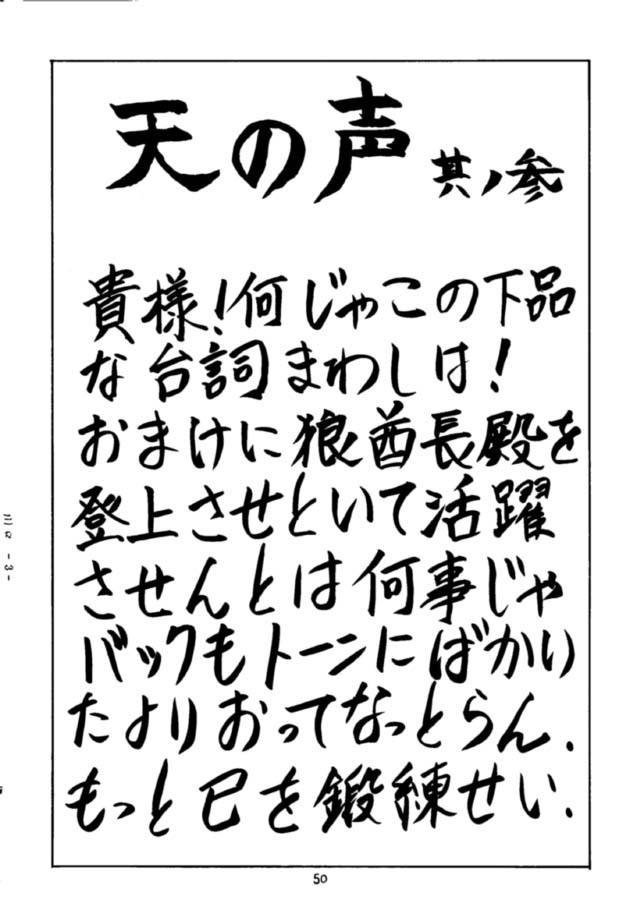 天の声 其ノ参
貴様!何じゃこの下品
な台詞まわしは!
おまけに狼酋長殿を
登上させといて活躍
させんとは何事じゃ
バックもトーンにばかい
たよりおってなっとらん.
もっと己を鍛練せい.
50